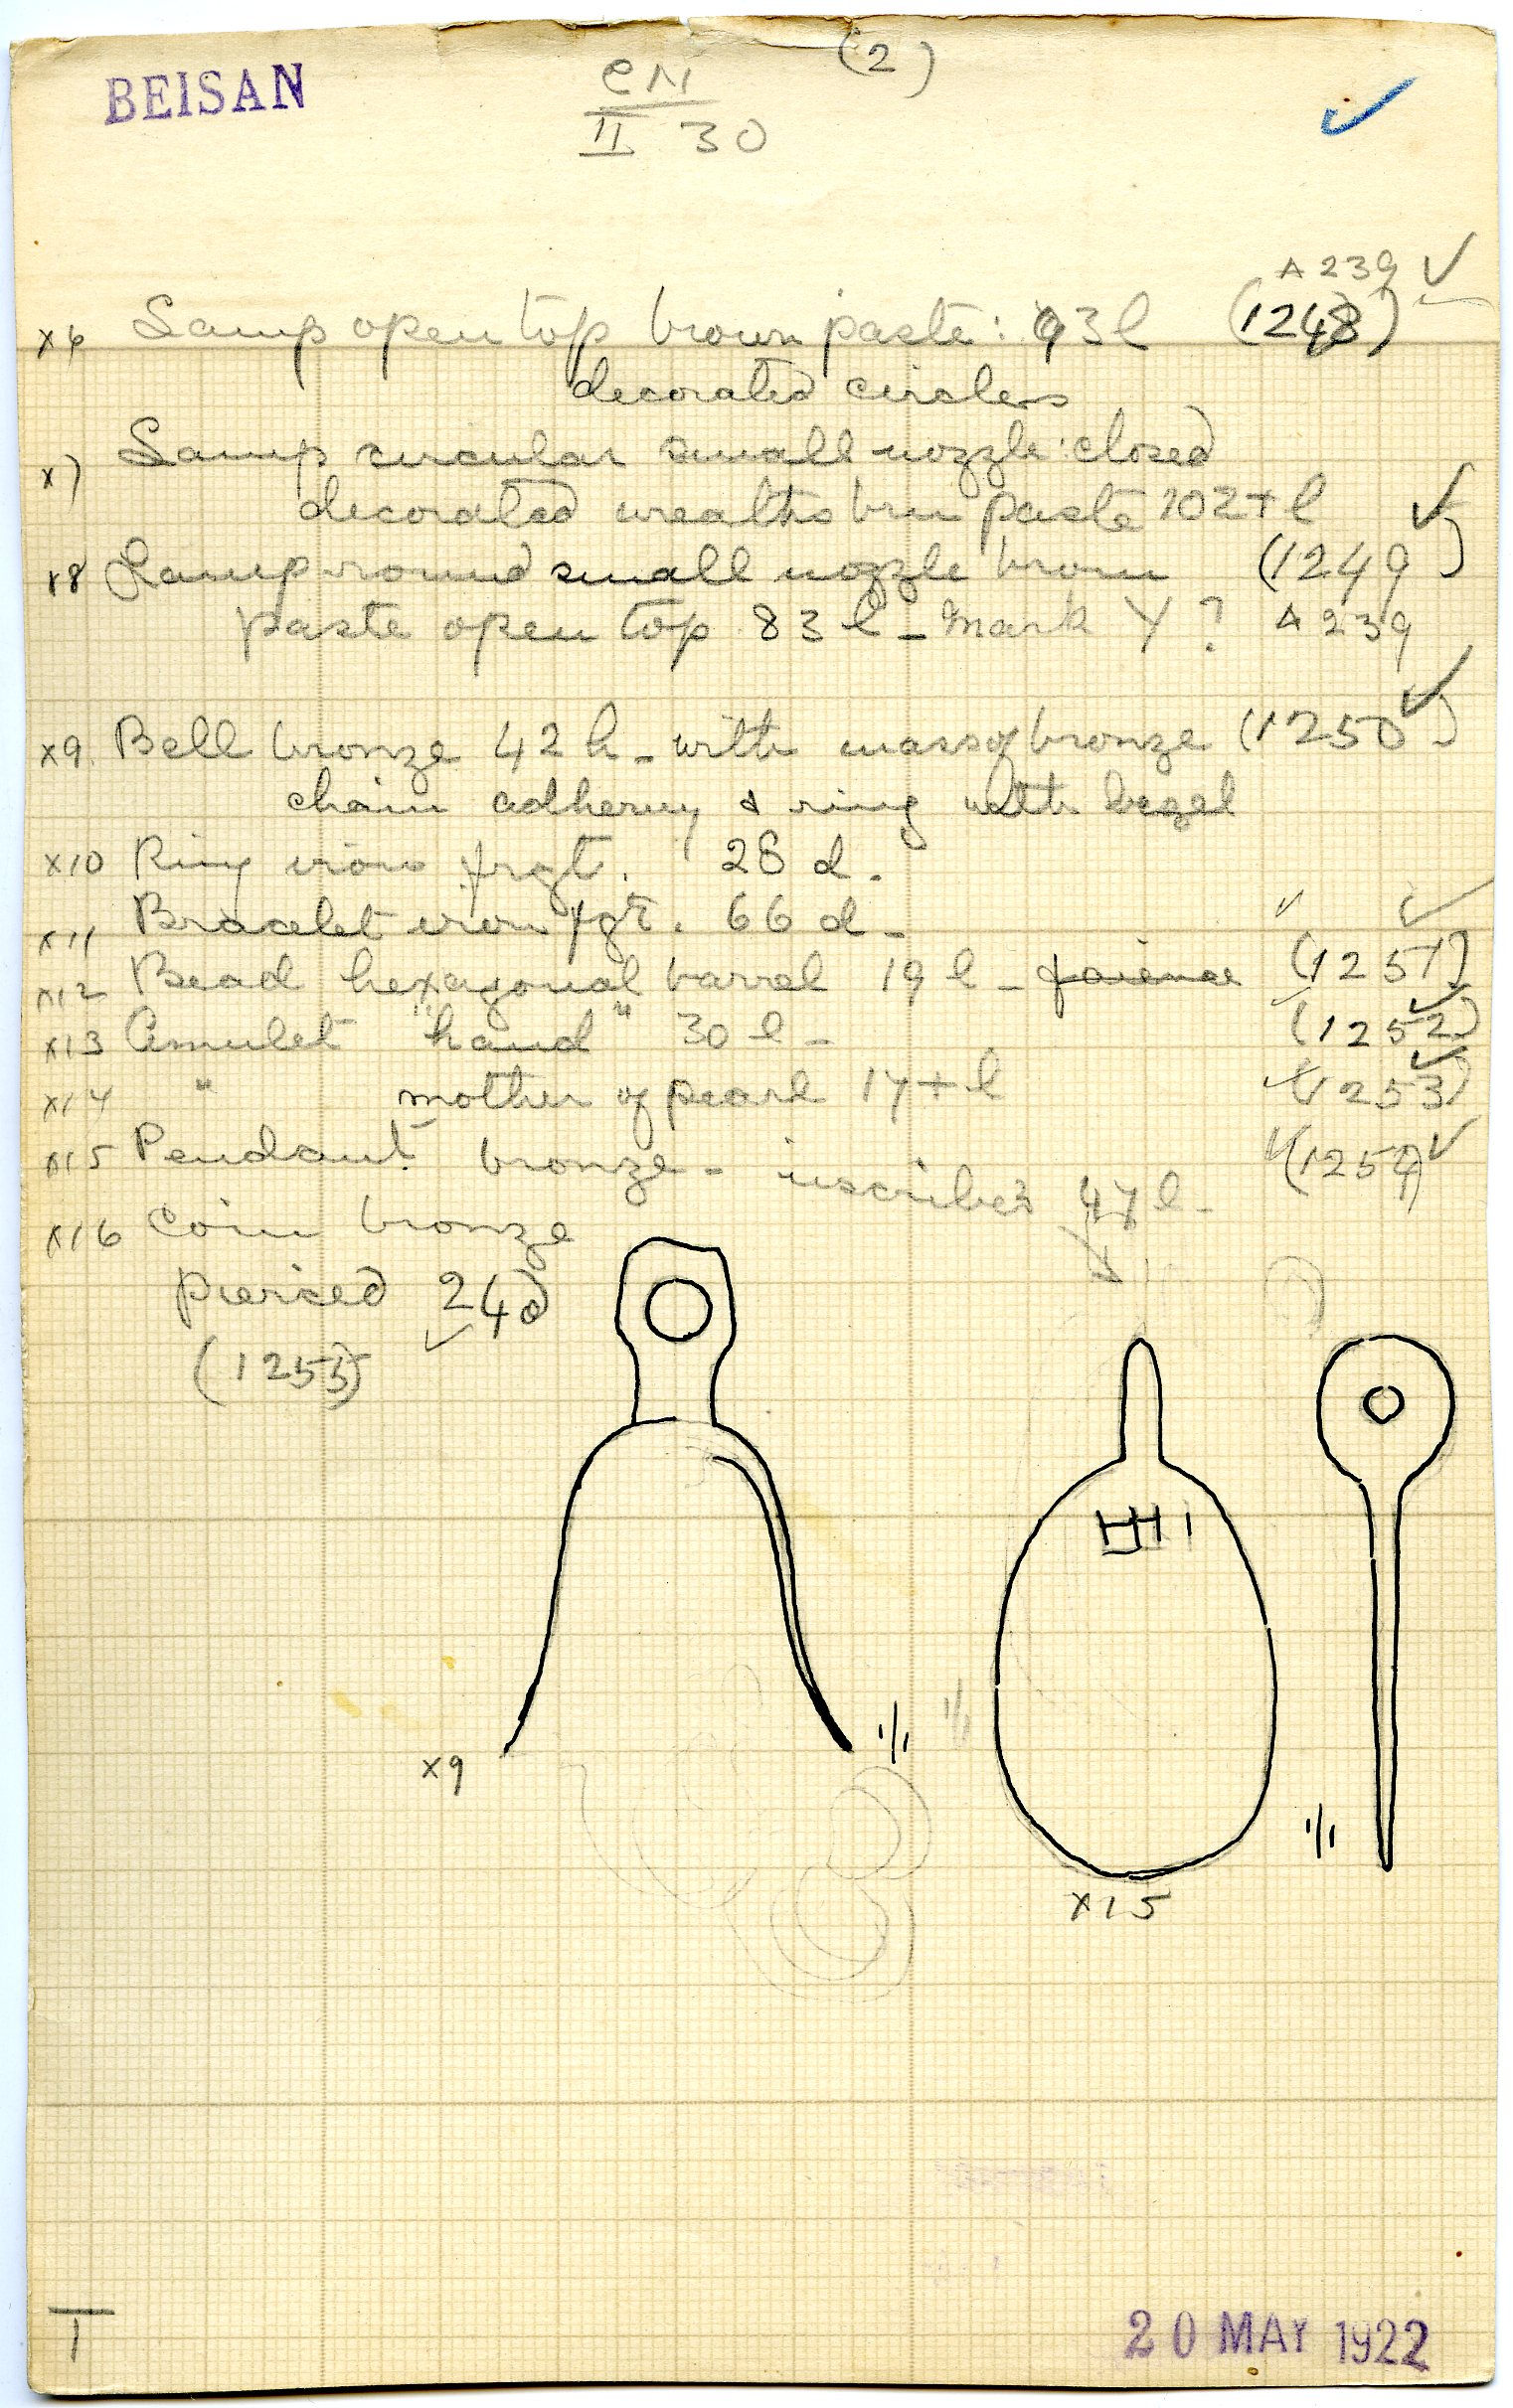 BEISAN
(2)
CM
II 30
A 239
x6 Lamp open top brown paste: 93 l (1248)
decorated circles
x7 Lamp circular small nozzle: closed
decorated wreaths brn paste 102+ l
x8 Lamp round small nozzle brown (1249)
paste open top 83 l - Mark Y ? A 239
x9. Bell bronze 42 h - with mass of bronze (1250)
chain adhering & ring with bezel
x10 Ring iron frgt. 28 d.
x11 Bracelet iron fgt. 66 d -
x12 Bead hexagonal barrel 19 l - faience (1251)
x13 Amulet "hand" 30 l - (1252)
x14 " mother of pearl 17+ l (1253)
x15 Pendant bronze - inscribed 47 l - (1254)
x16 Coin bronze
pierced 24d
(1255)
x9
1/1
1/1
1/1
x15
T
20 MAY 1922